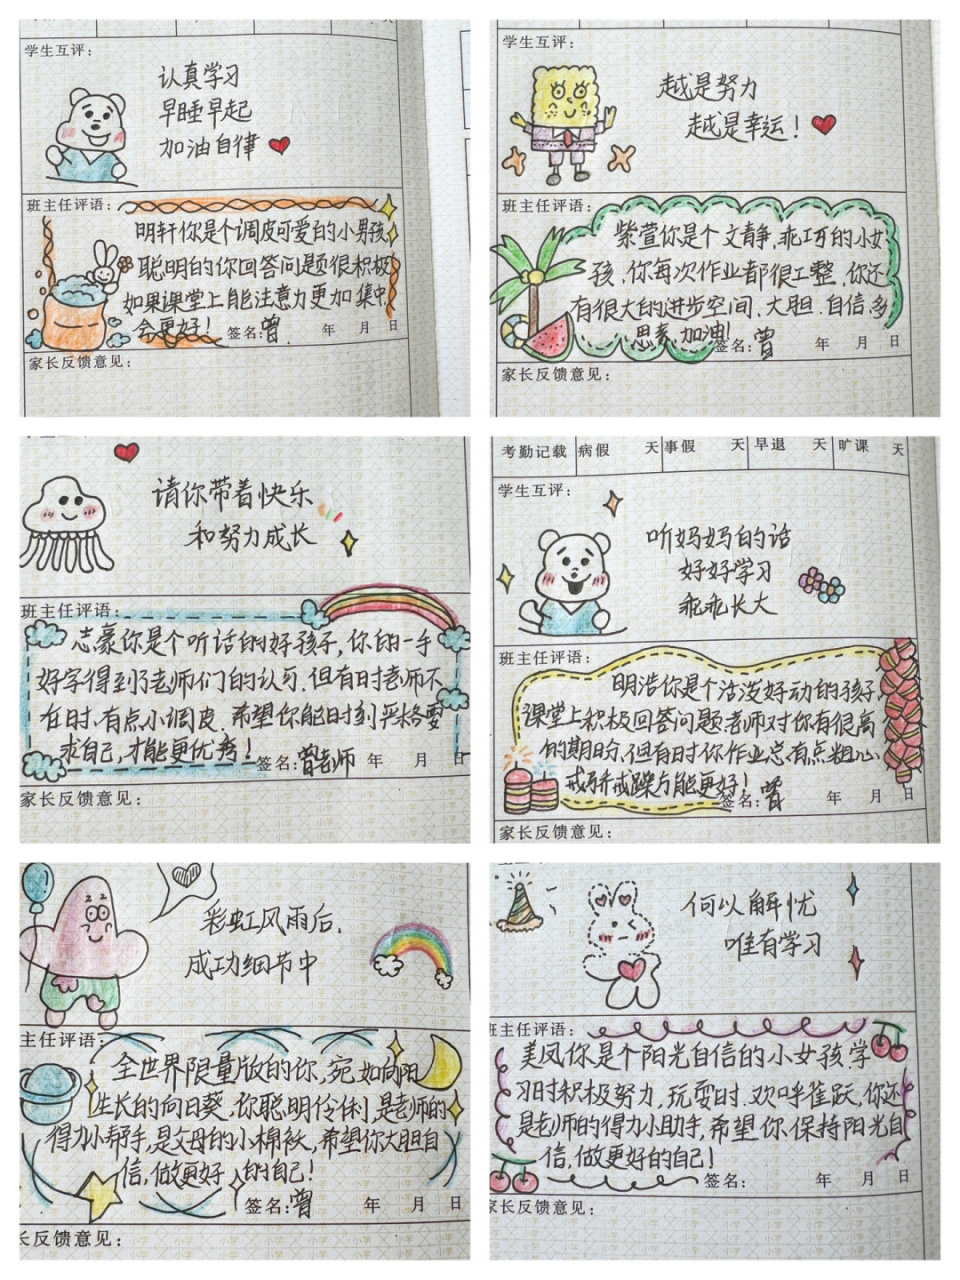 学生互评：
认真学习
早睡早起
加油自律
班主任评语：
明轩你是个调皮可爱的小男孩
聪明的你回答问题很积极
如果课堂上能注意力更加集中
会更好！
签名：曾 年 月 日
家长反馈意见：
学生互评：
越是努力
越是幸运！
班主任评语：
紫萱你是个文静，乖巧的小女
孩，你每次作业都很工整，你还
有很大的进步空间，大胆．自信，多
思考，加油！
签名：曾 年 月 日
家长反馈意见：
请你带着快乐
和努力成长
班主任评语：
志豪你是个听话的好孩子，你的一手
好字得到了老师们的认可．但有时老师不
在时，有点小调皮．希望你能时刻严格要
求自己，才能更优秀！
签名：曾老师 年 月 日
家长反馈意见：
考勤记载 病假 天 事假 天 早退 天 旷课 天
学生互评：
听妈妈的话
好好学习
乖乖长大
班主任评语：
明浩你是个活泼好动的孩子，
课堂上积极回答问题．老师对你有很高
的期盼，但有时你作业总有点粗心
戒骄戒躁方能更好！
签名：曾 年 月 日
家长反馈意见：
彩虹风雨后，
成功细节中
主任评语：
全世界限量版的你，宛如向阳
生长的向日葵，你聪明伶俐，是老师的
得力小帮手，是父母的小棉袄，希望你大胆自
信，做更好的自己！
签名：曾 年 月 日
长反馈意见：
何以解忧
唯有学习
班主任评语：
美凤你是个阳光自信的小女孩，学
习时积极努力，玩耍时．欢呼雀跃，你还
是老师的得力小助手，希望你保持阳光自
信，做更好的自己！
签名： 年 月 日
家长反馈意见：